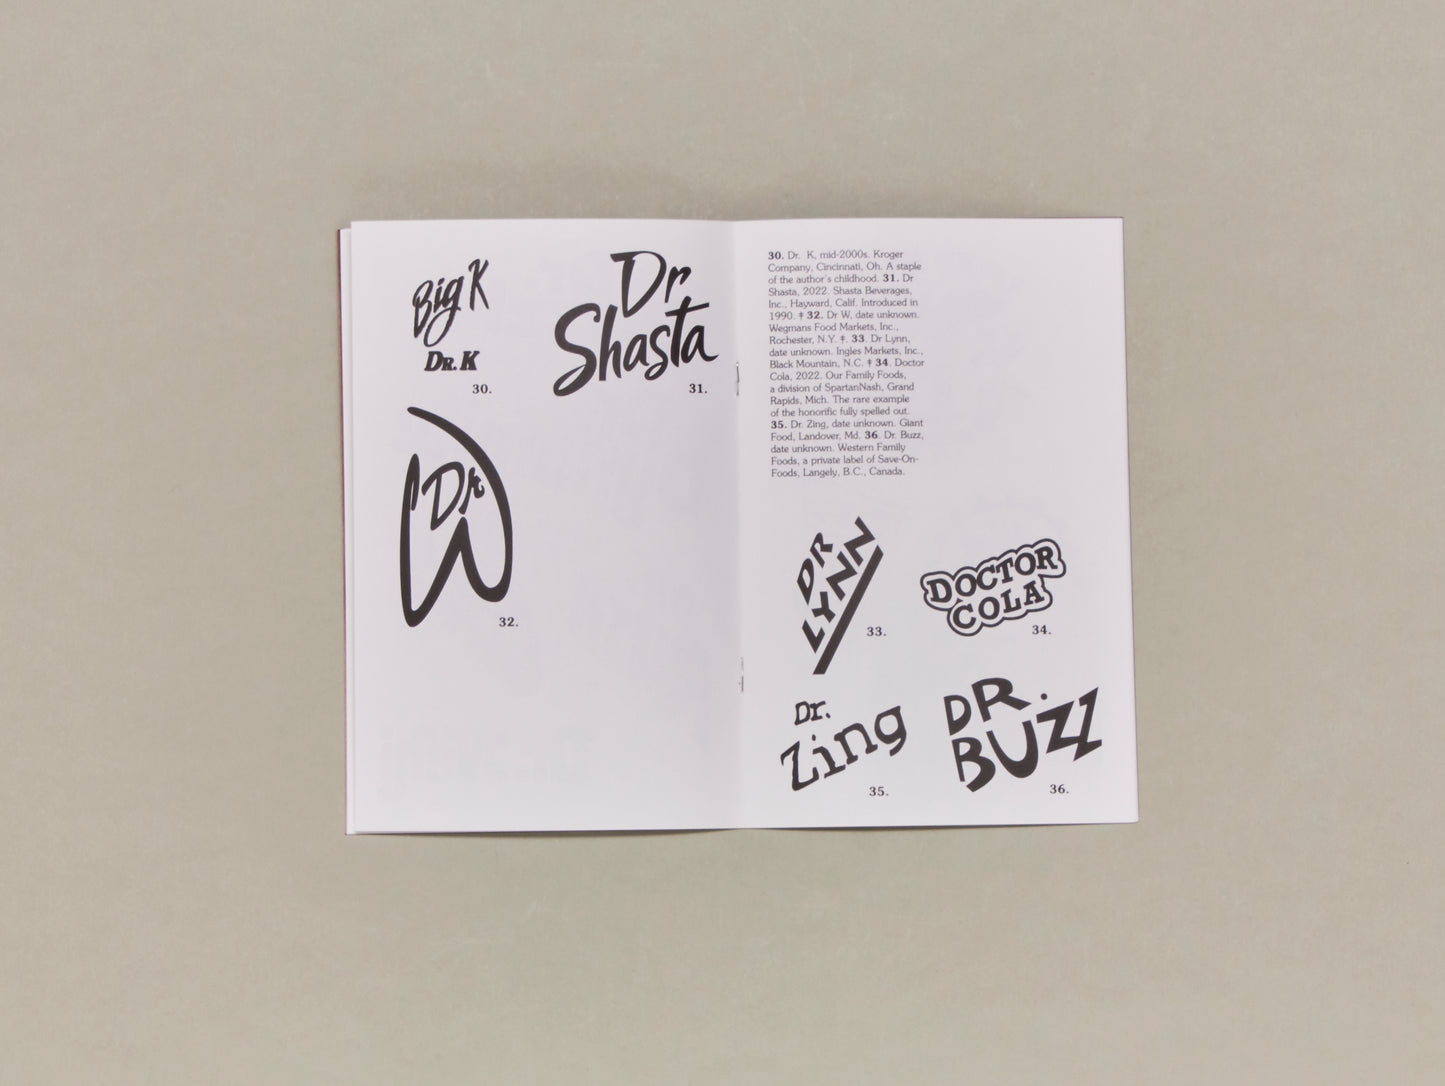 Big K
DR. K
30.
Dr
Shasta
31.
Dr
W
32.
30. Dr. K, mid-2000s. Kroger
Company, Cincinnati, Oh. A staple
of the author's childhood. 31. Dr
Shasta, 2022. Shasta Beverages,
Inc., Hayward, Calif. Introduced in
1990. ‡ 32. Dr W, date unknown.
Wegmans Food Markets, Inc.,
Rochester, N.Y. ‡. 33. Dr Lynn,
date unknown. Ingles Markets, Inc.,
Black Mountain, N.C. ‡ 34. Doctor
Cola, 2022. Our Family Foods,
a division of SpartanNash, Grand
Rapids, Mich. The rare example
of the honorific fully spelled out.
35. Dr. Zing, date unknown. Giant
Food, Landover, Md. 36. Dr. Buzz,
date unknown. Western Family
Foods, a private label of Save-On-
Foods, Langely, B.C., Canada.
DR
LYNN
33.
DOCTOR
COLA
34.
Dr.
Zing
35.
DR.
BUZZ
36.